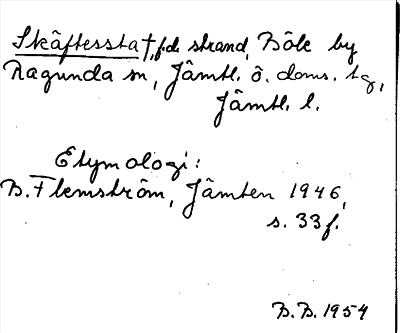 Skäftessta †, f.d. strand, Böle by
Ragunda sn, Jämtl. ö. doms. tg,
Jämtl. l.
Etymologi:
B. Flemström, Jämten 1946,
s. 33 f.
B.B. 1954